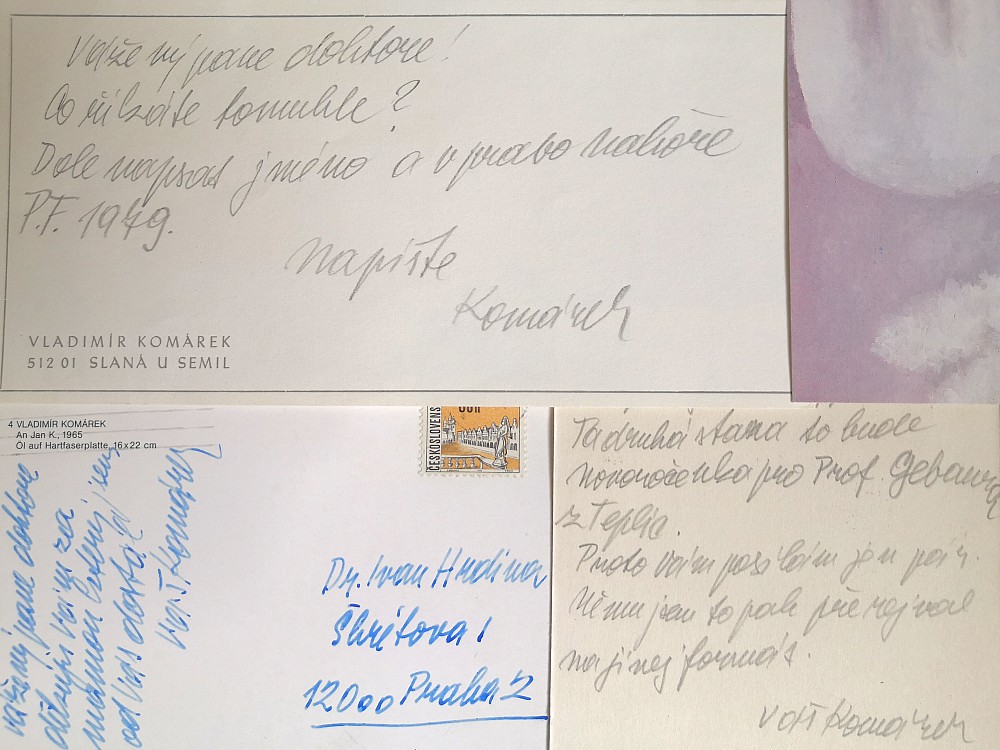 Vážený pane doktore!
Co říkáte tomuhle?
Dole napsat jméno a v pravo nahoře
P.F. 1979.
Napište
Komárek
VLADIMÍR KOMÁREK
512 01 SLANÁ U SEMIL
4 VLADIMÍR KOMÁREK
An Jan K., 1965
Öl auf Hartfaserplatte, 16x22 cm
Vážený pane doktore
děkuji Vám za
který jsem
od Vás dostal
Váš Komárek
ČESKOSLOVENS
60h
Dr. Ivan Hrdina
Škrétova 1
12000 Praha 2
Ta druhá strana to bude
novoročenka pro Prof. Gebauera
z Teplic.
Proto Vám posílám jen pár.
Němu jsem to pak přerejval
na jinej formát.
Váš Komárek